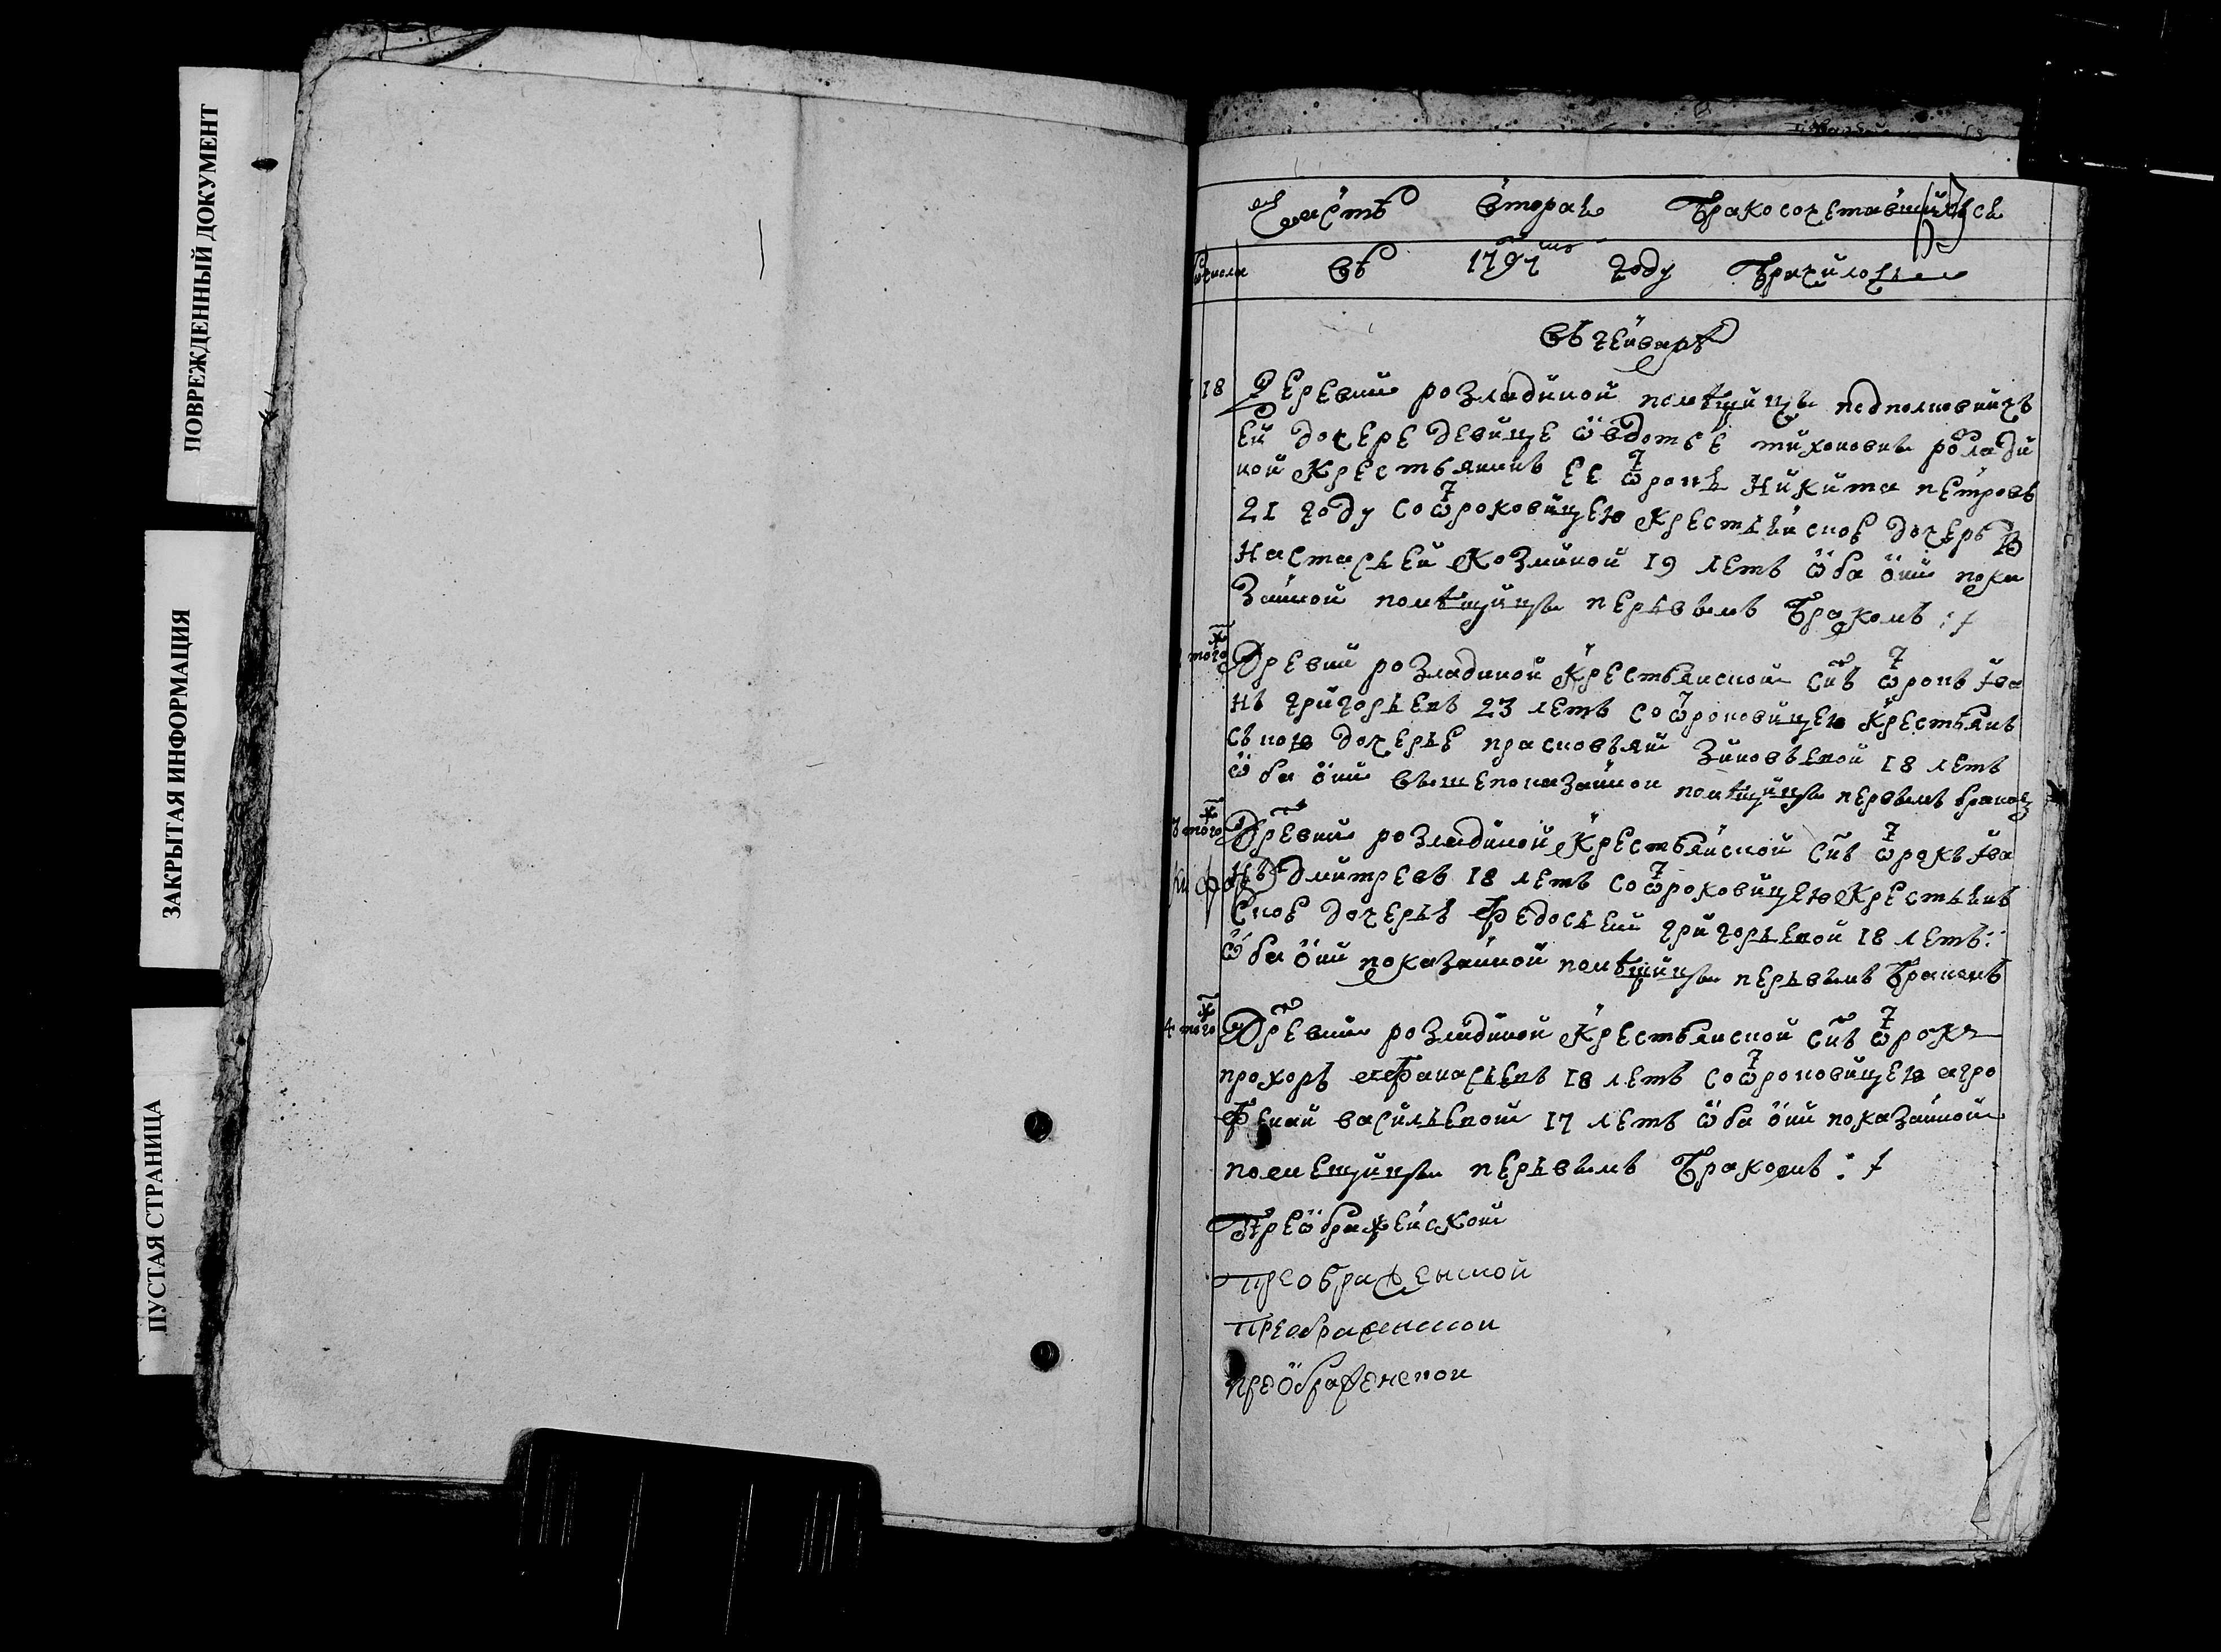 ПОВРЕЖДЕННЫЙ ДОКУМЕНТ
ЗАКРЫТАЯ ИНФОРМАЦИЯ
ПУСТАЯ СТРАНИЦА
Часть вторая Бракосочетавшихся
числа Въ 1797 году
въ генваре
18 Деревни розладиной помѣщицы
ей дочере девице овдотье тихоновне
ной Крестьянинъ ее отрокъ Никита петровъ
21 году со отроковицею дочерью
Настасьей Козминой 19 летъ оба они пока
занной помѣщицы перьвымъ бракомъ
того ж Древни розладиной Крестьянской снъ отрокъ Ива
нъ григорьевъ 23 летъ со отроковицею Крестьянъ
скою дочерье прасковьяй Зиновьевой 18 летъ
оба они вышепоказанной помѣщицы первымъ
3 того ж Древни розладиной Крестьянской снъ отрокъ Ива
нъ дмитревъ 18 летъ со отроковицею Крестьянъ
ской дочерье Федосьей григорьевой 18 летъ
оба они показанной помѣщицы перьвымъ бракомъ
4 того ж Древни розладиной Крестьянской снъ отрокъ
прохоръ афанасьевъ 18 летъ со отроковицею агро
феной васильевой 17 летъ оба они показанной
помещицы перьвымъ бракомъ
Преображенской
преображенской
преображенской
преображенской